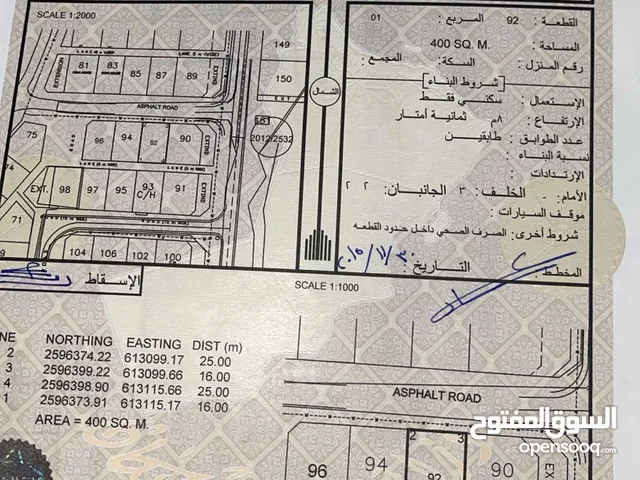 SCALE 1:2000
القطعة : 92 المربع : 01
المساحة : 400 SQ. M.
رقم المنزل : السكة: المجمع :
شروط البناء
الإستعمال : سكني فقط
الإرتفاع : ٨م ثمانية أمتار
عدد الطوابق : طابقين
نسبة البناء :
الإرتدادات :
الأمام: - الخلف: ٣ الجانبان: ٢ ٢
موقف السيارات :
شروط أخرى: الصرف الصحي داخل حدود القطعه
المخطط : التاريخ: ٢٠١٥/١١/٣٠
الشمال
149
150
EXT
81 83 85 87 89
EXTENSION
EXTND
ASPHALT ROAD
75
96 94 92 90
EXTND
18
2012/2532
EXT. 98 97 95 93 91
C/H
EXTND
74
71
104 106 102 100
الإسقاط
SCALE 1:1000
NORTHING EASTING DIST (m)
2 2596374.22 613099.17 25.00
3 2596399.22 613099.66 16.00
4 2596398.90 613115.66 25.00
1 2596373.91 613115.17 16.00
AREA = 400 SQ. M.
ASPHALT ROAD
2 3
96 94 92 90 EX
السوق المفتوح
opensooq.com